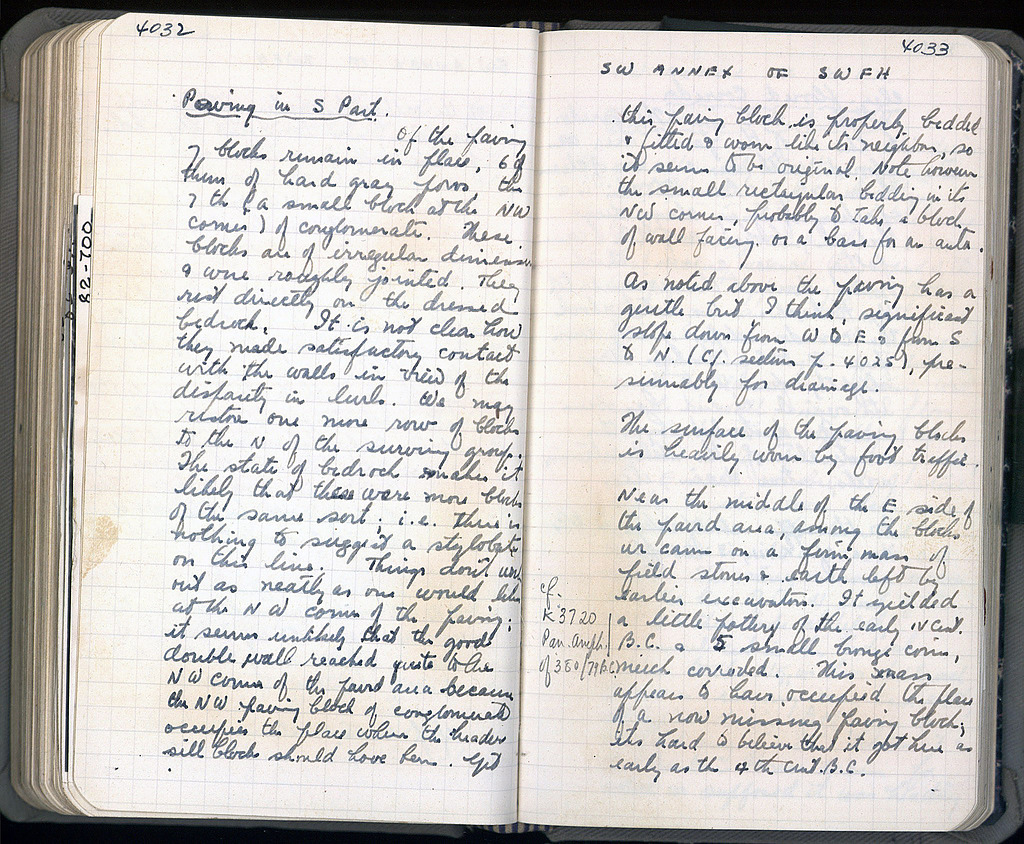 4032
Paving in S Part.
Of the paving
7 blocks remain in place, 6 of
them of hard gray poros, the
7th (a small block at the NW
corner) of conglomerate. These
blocks are of irregular dimensions
& were roughly jointed. They
rest directly on the dressed
bedrock. It is not clear how
they made satisfactory contact
with the walls in view of the
disparity in levels. We may
restore one more row of blocks
to the N of the surviving group.
The state of bedrock makes it
likely that these were more blocks
of the same sort, i.e. there is
nothing to suggest a stylobate
on this line. Things don't work
out as neatly as one would like
at the NW corner of the paving:
it seems unlikely that the good
double wall reached quite to the
NW corner of the paved area because
the NW paving block of conglomerate
occupies the place where the header
sill blocks should have been. Yet
82-700
4033
SW ANNEX OF SWFH
this paving block is properly bedded
& fitted & worn like its neighbors, so
it seems to be original. Note however
the small rectangular bedding in its
NW corner, probably to take a block
of wall facing or a base for an anta.
As noted above the paving has a
gentle but I think, significant
slope down from W to E & from S
to N. (Cf. section p. 4025), pre-
sumably for drainage.
The surface of the paving blocks
is heavily worn by foot traffic.
Near the middle of the E side of
the paved area, among the blocks
we came on a firm mass of
field stones & earth left by
earlier excavators. It yielded
a little pottery of the early IV cent.
B.C. & 5 small bronze coins,
much corroded. This mass
appears to have occupied the place
of a now missing paving block;
its hard to believe that it got here as
early as the 4th cent. B.C.
cf.
K 3720
Pan. Amph.
of 380/79 B.C.